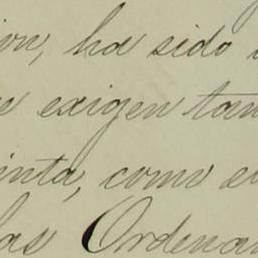 ion, ha sido
e exigen tan
inta, como e
las Ordenan